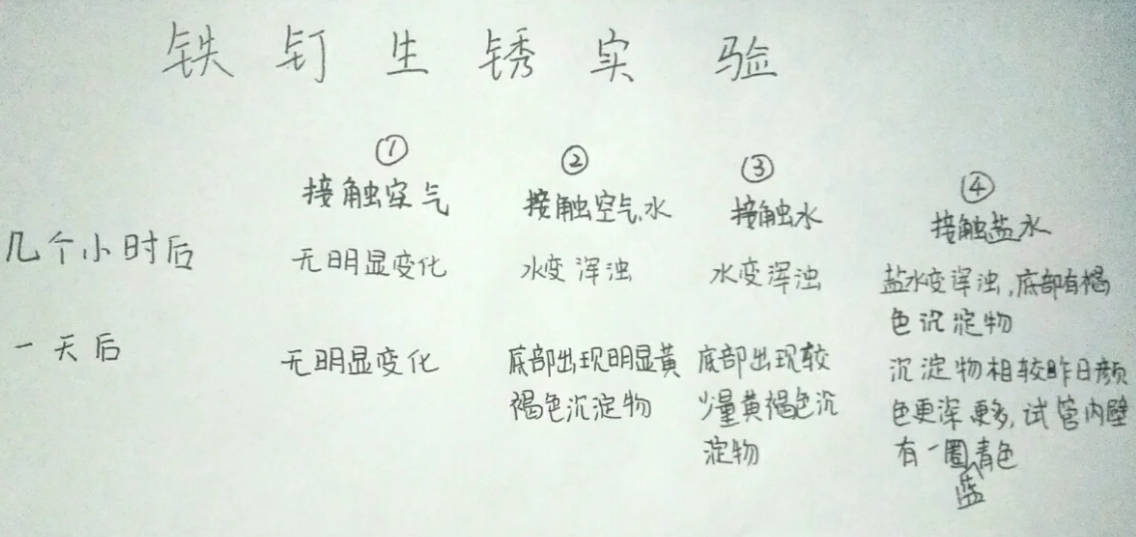 铁钉生锈实验
① ② ③ ④
接触空气 接触空气、水 接触水 接触盐水
几个小时后 无明显变化 水变浑浊 水变浑浊 盐水变浑浊,底部有褐
色沉淀物
一天后 无明显变化 底部出现明显黄 底部出现较 沉淀物相较昨日颜
褐色沉淀物 少量黄褐色沉 色更深更多,试管内壁
淀物 有一圈青色
蓝